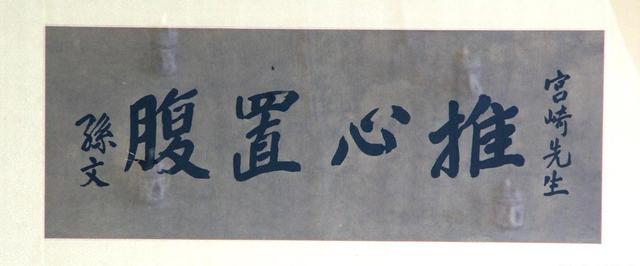 宮崎先生
推心置腹
孫文